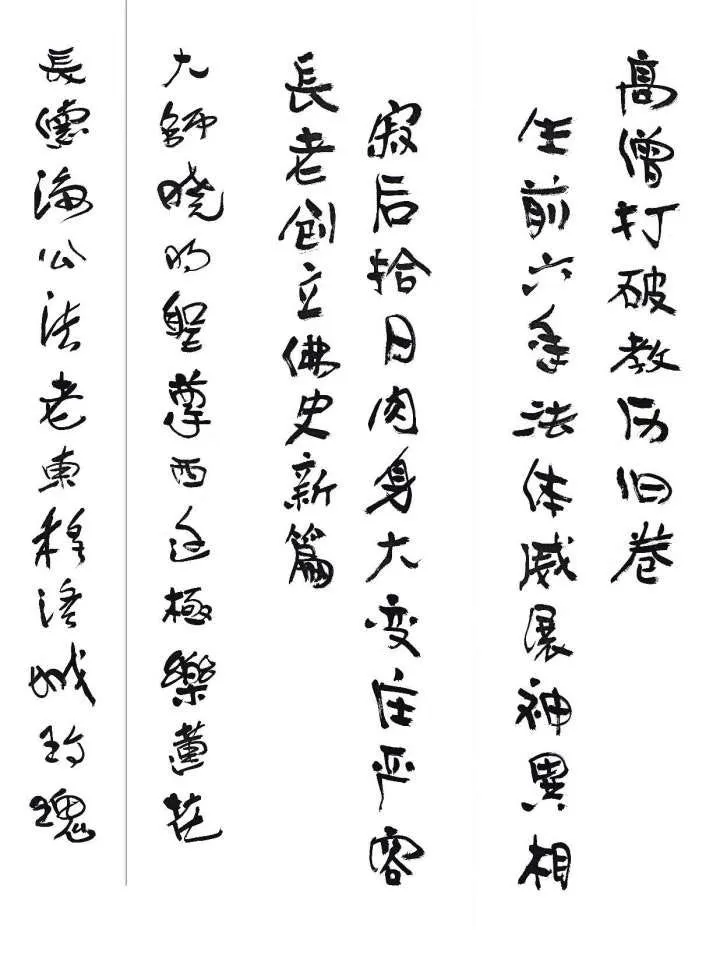 高僧打破教历旧卷
生前六年法体威展神異相
寂后拾日肉身大变庄严容
長老创立佛史新篇
大師晓聖尊西極樂蓮花
長德海公法老東移洛城玫瑰